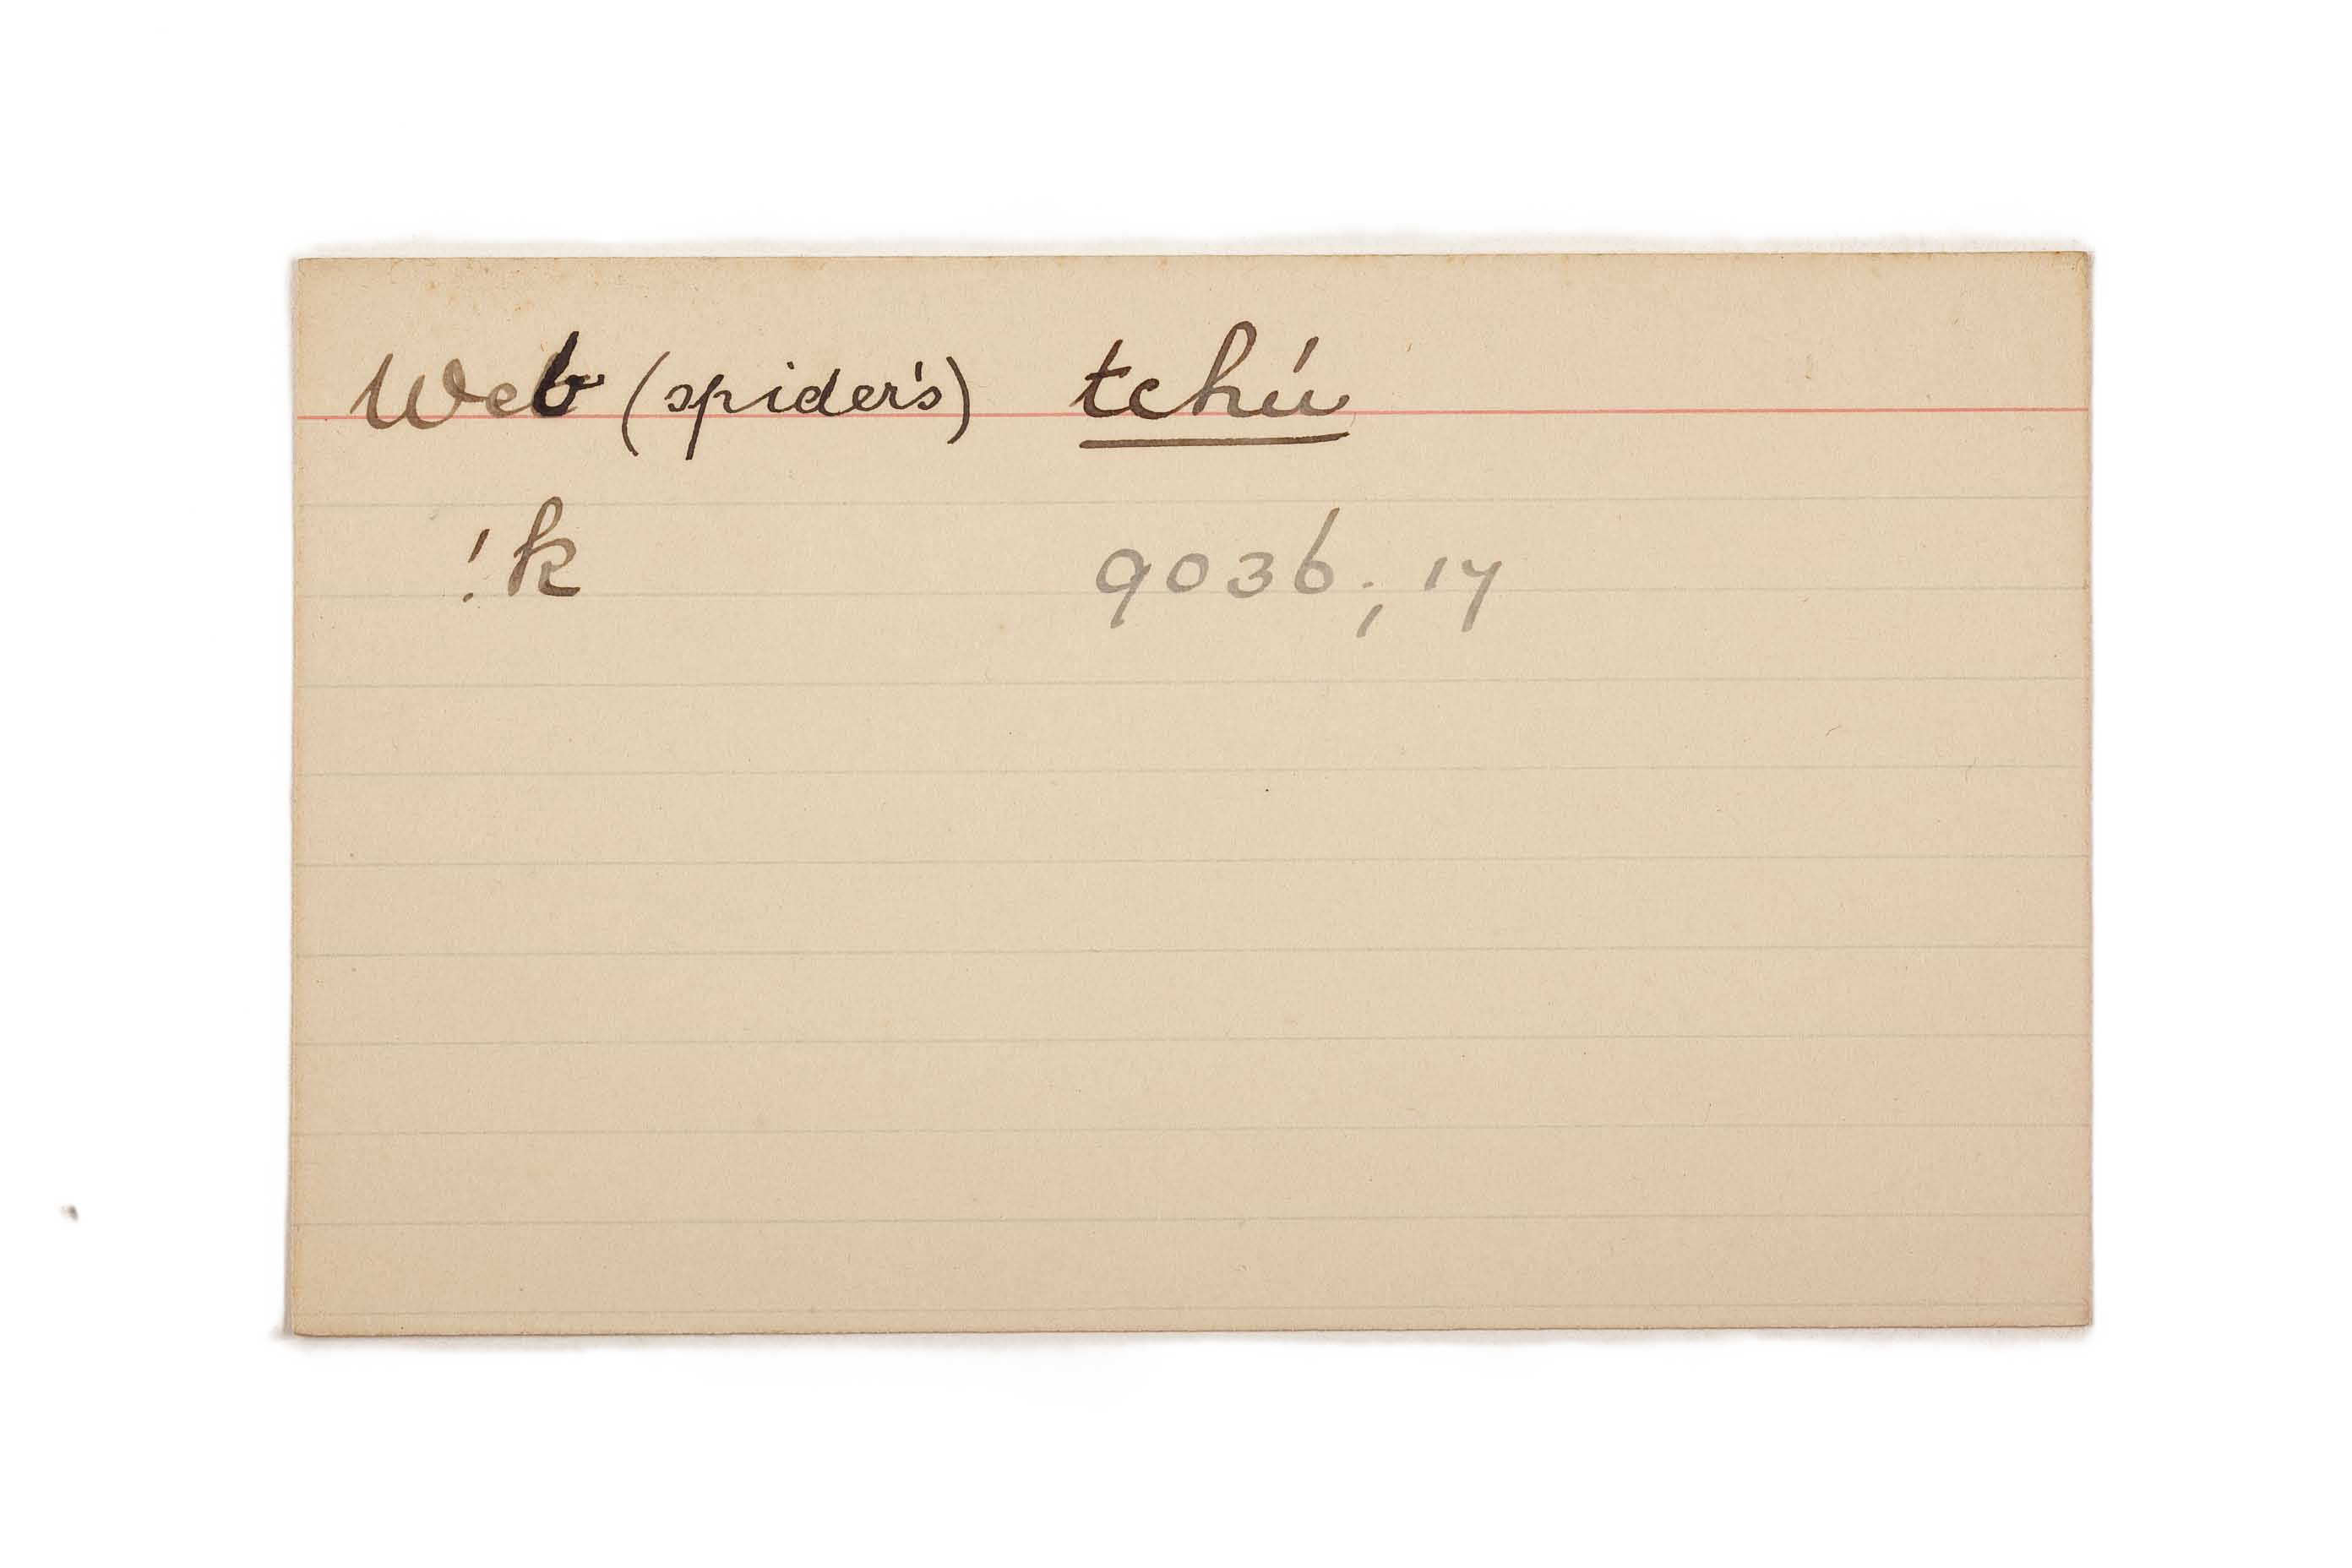 Web (spider's) tchú
!k 9036; 17